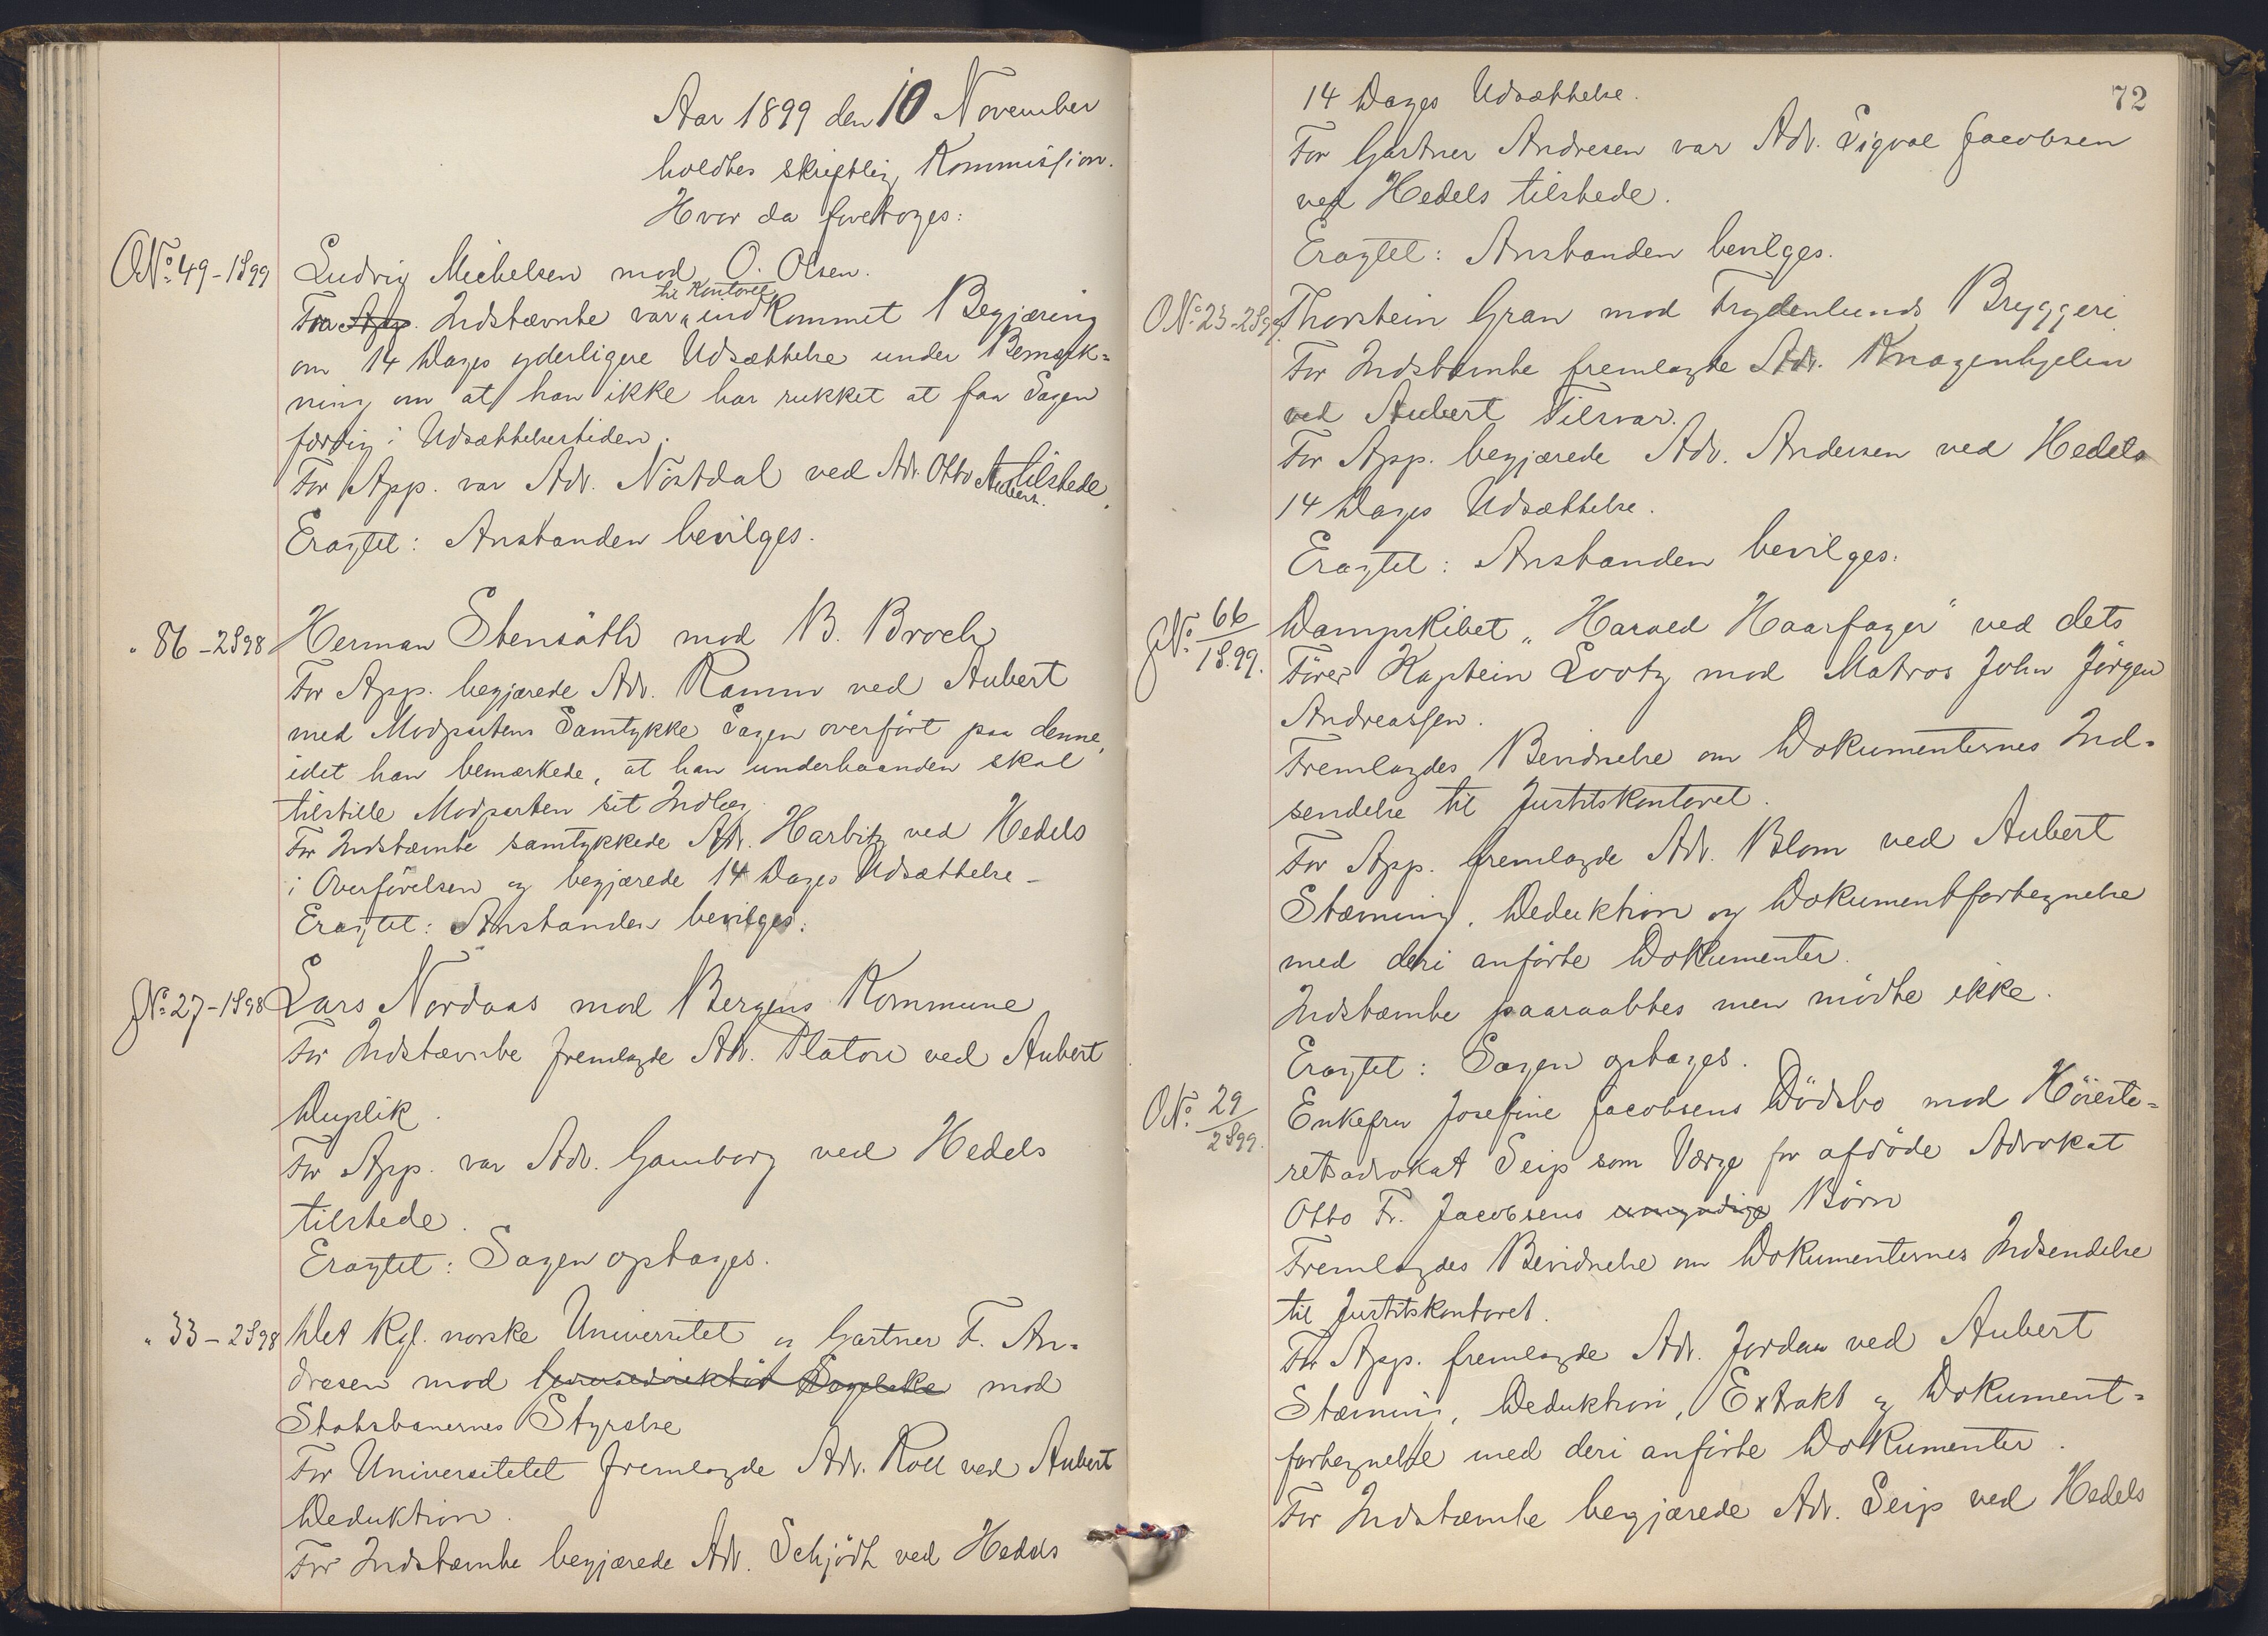 Aar 1899 den 10 November
holdtes skriftlig Kommission.
Hvor da foretoges:
O№ 49-1S99 Ludvig Michelsen mod O. Olsen.
Fra App. Indstævnte var til Kontoret indkommet Begjæring
om 14 Dages yderligere Udsættelse under Bemærk=
ning om at han ikke har rukket at faa Sagen
færdig i Udsættelsestiden.
For App. var Adv. Nöstdal ved Adv. Otto Aubert tilstede.
Eragtet: Anstanden bevilges.
" 86-2S98 Herman Stensäth mod B. Broch
For App. begjærede Adv. Ramm ved Aubert
med Modpartens Samtykke Sagen overført paa denne,
idet han bemærkede, at han underhaanden skal
tilstille Modparten sit Indlæg.
For Indstævnte samtykkede Adv. Harbitz ved Hedels
i Overførelsen og begjærede 14 Dages Udsættelse-
Eragtet: Anstanden bevilges.
J№ 27-1S98 Lars Nordaas mod Bergens Kommune
For Indstævnte fremlagde Adv. Platou ved Aubert
Duplik.
For App. var Adv. Gamborg ved Hedels
tilstede.
Eragtet: Sagen optages.
" 33-2S98 Det Kgl. norske Universitet og Gartner F. An=
dresen mod mod
Statsbanernes Styrelse
For Universitetet fremlagde Adv. Roll ved Aubert
Deduktion.
For Indstævnte begjærede Adv. Schjödt ved Hedels
72
14 Dages Udsættelse.
For Gartner Andresen var Adv. Sigval Jacobsen
ved Hedels tilstede.
Eragtet: Anstanden bevilges.
O№ 23-2S99. Thorstein Gran mod Frydenlunds Bryggeri
For Indstævnte fremlagde Adv. Knagenhjelm
ved Aubert Tilsvar.
For App. begjærede Adv. Andersen ved Hedels
14 Dages Udsættelse.
Eragtet: Anstanden bevilges.
J№ 66/1S.99. Dampskibet "Harald Haarfager" ved dets
Fører Kaptein Lootz mod Matros John Jörgen
Andreassen.
Fremlagdes Bevidnelse om Dokumenternes Ind=
sendelse til Justitskontoret.
For App. fremlagde Adv. Blom ved Aubert
Stævning, Deduktion og Dokumentfortegnelse
med deri anførte Dokumenter.
Indstævnte paaraabtes men mödte ikke.
Eragtet: Sagen optages.
O№ 29/2S99. Enkefru Josefine Jacobsens Dödsbo mod Höieste=
retsadvokat Seip som Værge for afdöde Advokat
Otto Fr. Jacobsens umyndige Börn
Fremlagdes Bevidnelse om Dokumenternes Indsendelse
til Justitskontoret.
For App. fremlagde Adv. Jordan ved Aubert
Stævning, Deduktion, Extrakt og Dokument=
fortegnelse med deri anförte Dokumenter.
For Indstævnte begjærede Adv. Seip ved Hedels